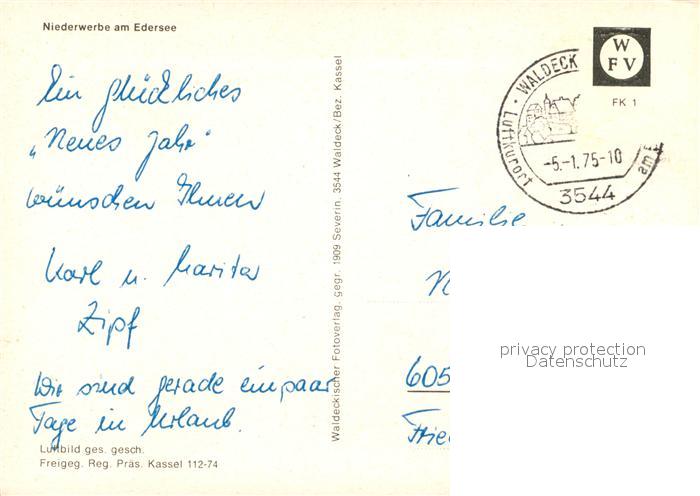 Niederwerbe am Edersee
Ein glückliches
„Neues Jahr"
wünschen Ihnen
Karl u. Marita
Zipf
Wir sind gerade ein paar
Tage in Urlaub.
Luftbild ges. gesch.
Freigeg. Reg. Präs. Kassel 112-74
Waldeckischer Fotoverlag, gegr. 1909 Severin, 3544 Waldeck/Bez. Kassel
W
F V
FK 1
Luftkurort · WALDECK am
-5.-1.75-10
3544
Familie
N
605
Frie
privacy protection
Datenschutz